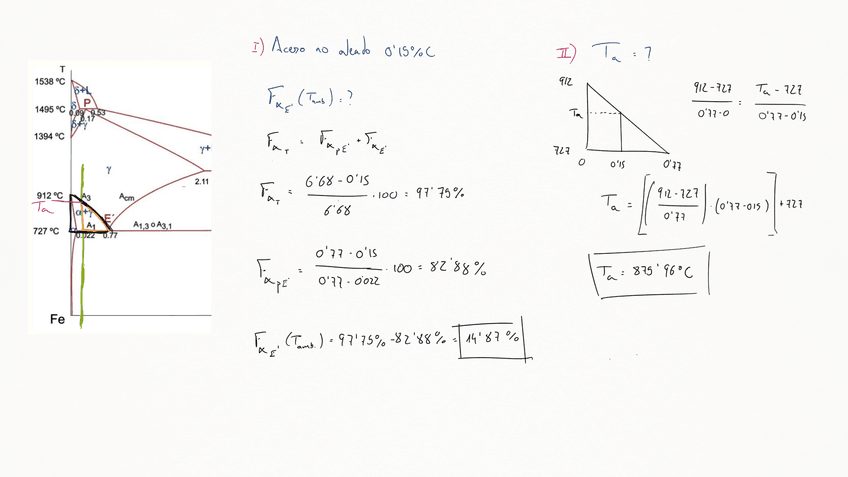 T
1538 ºC
δ+L
P
1495 ºC
δ
0.09
0.53
0.17
δ+γ
1394 ºC
γ
γ+
2.11
912 ºC
A3
Acm
Ta
α+γ
E'
A1
A1,3 o A3,1
727 ºC
0.022
0.77
Fe
I) Acero no aleado 0'15%C
FαE' (Tamb) = ?
FαT = FαPE' + FαE'
FαT = 6'68 - 0'15 / 6'68 · 100 = 97'75%
FαPE' = 0'77 - 0'15 / 0'77 - 0'022 · 100 = 82'88%
FαE' (Tamb.) = 97'75% - 82'88% = 14'87%
II) Ta = ?
912
Ta
727
0 0'15 0'77
912-727 / 0'77-0 = Ta - 727 / 0'77-0'15
Ta = [(912-727 / 0'77) · (0'77-015)] + 727
Ta = 875'96ºC